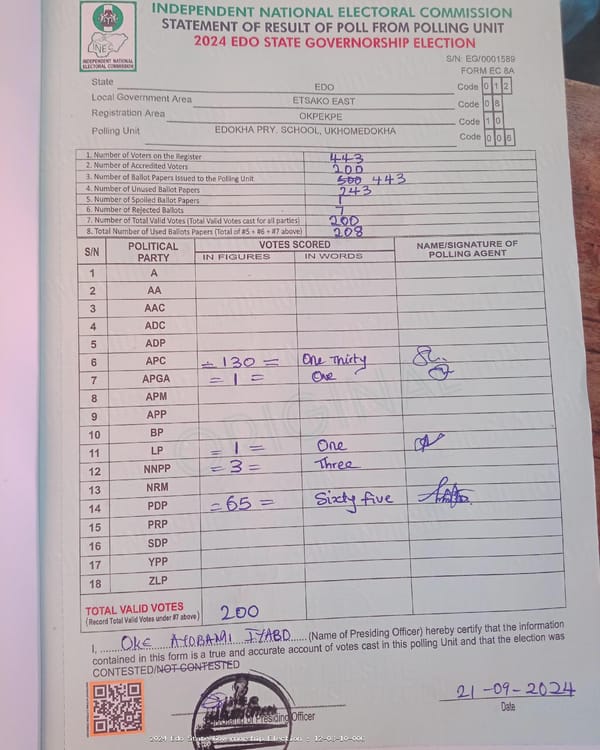 INDEPENDENT NATIONAL ELECTORAL COMMISSION
STATEMENT OF RESULT OF POLL FROM POLLING UNIT
2024 EDO STATE GOVERNORSHIP ELECTION
INEC
INDEPENDENT NATIONAL
ELECTORAL COMMISSION
S/N: EG/0001589
FORM EC 8A
State EDO Code 0 1 2
Local Government Area ETSAKO EAST Code 0 8
Registration Area OKPEKPE Code 1 0
Polling Unit EDOKHA PRY. SCHOOL, UKHOMEDOKHA Code 0 0 6
1. Number of Voters on the Register 443
2. Number of Accredited Voters 200
3. Number of Ballot Papers Issued to the Polling Unit 500 443
4. Number of Unused Ballot Papers 243
5. Number of Spoiled Ballot Papers 1
6. Number of Rejected Ballots 7
7. Number of Total Valid Votes (Total Valid Votes cast for all parties) 200
8. Total Number of Used Ballots Papers (Total of #5 + #6 + #7 above) 208
S/N POLITICAL PARTY VOTES SCORED NAME/SIGNATURE OF POLLING AGENT
IN FIGURES IN WORDS
1 A
2 AA
3 AAC
4 ADC
5 ADP
6 APC = 130 = One Thirty
7 APGA = 1 = One
8 APM
9 APP
10 BP
11 LP = 1 = One
12 NNPP = 3 = Three
13 NRM
14 PDP = 65 = Sixty five
15 PRP
16 SDP
17 YPP
18 ZLP
ORIGINAL
TOTAL VALID VOTES 200
(Record Total Valid Votes under #7 above)
I, OKE AYOBAMI IYABO (Name of Presiding Officer) hereby certify that the information
contained in this form is a true and accurate account of votes cast in this polling Unit and that the election was
CONTESTED/NOT CONTESTED
21-09-2024
Presiding Officer
Date
2024 Edo State Governorship Election